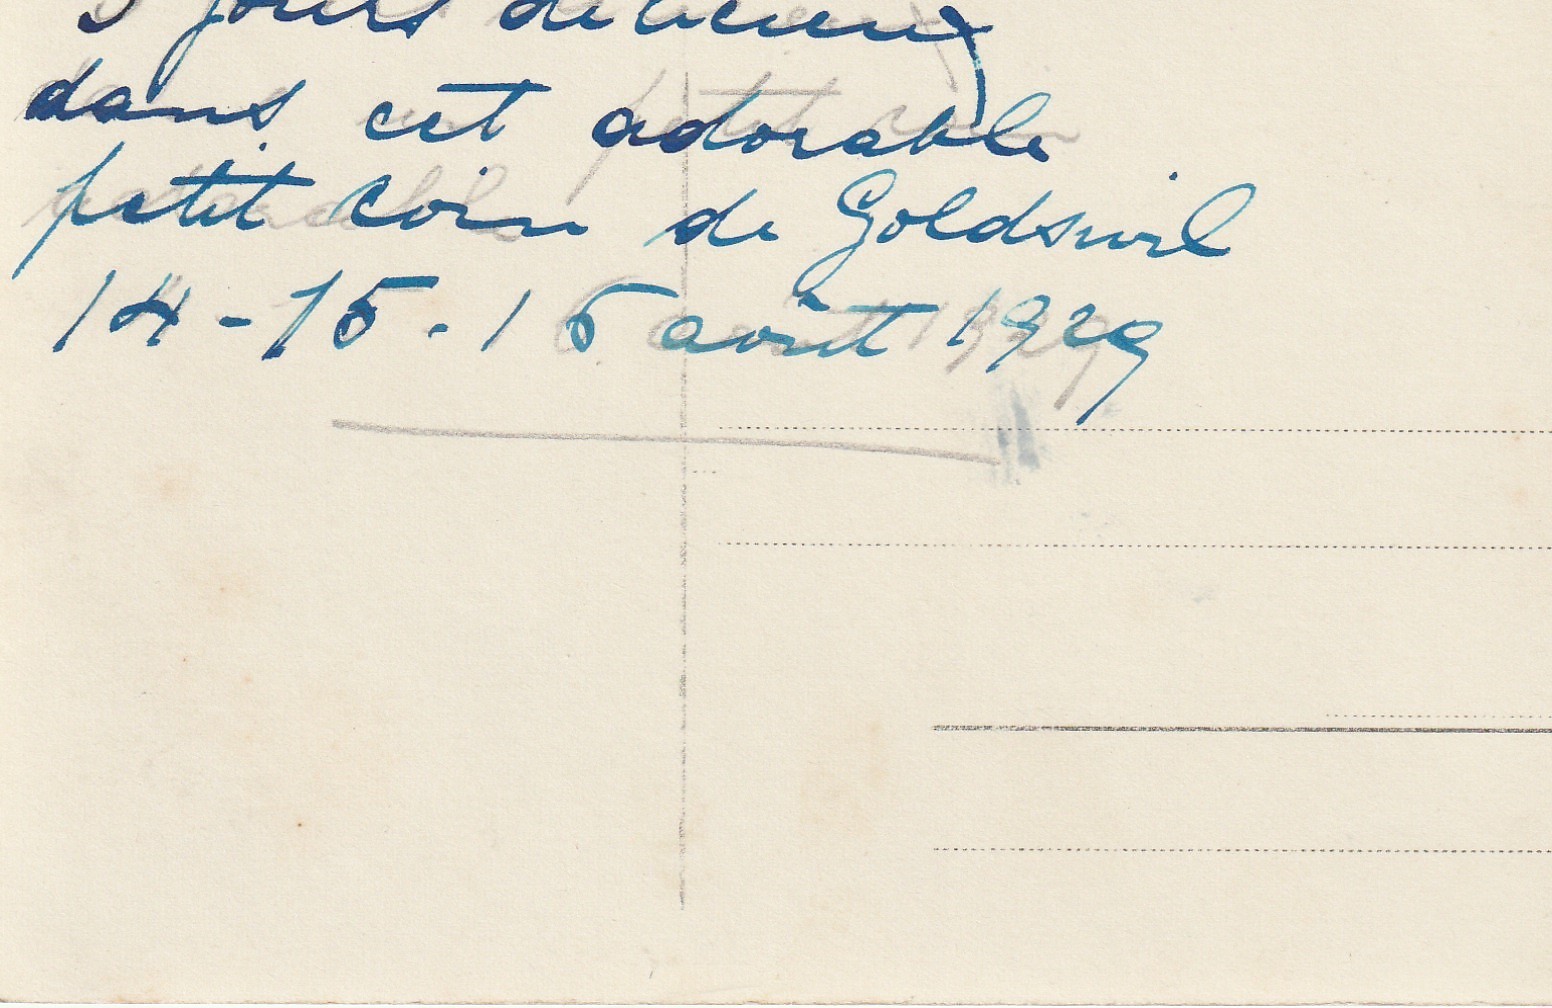 3 jours délicieux
dans cet adorable
petit coin de Goldswil
14-15.16 août 1929